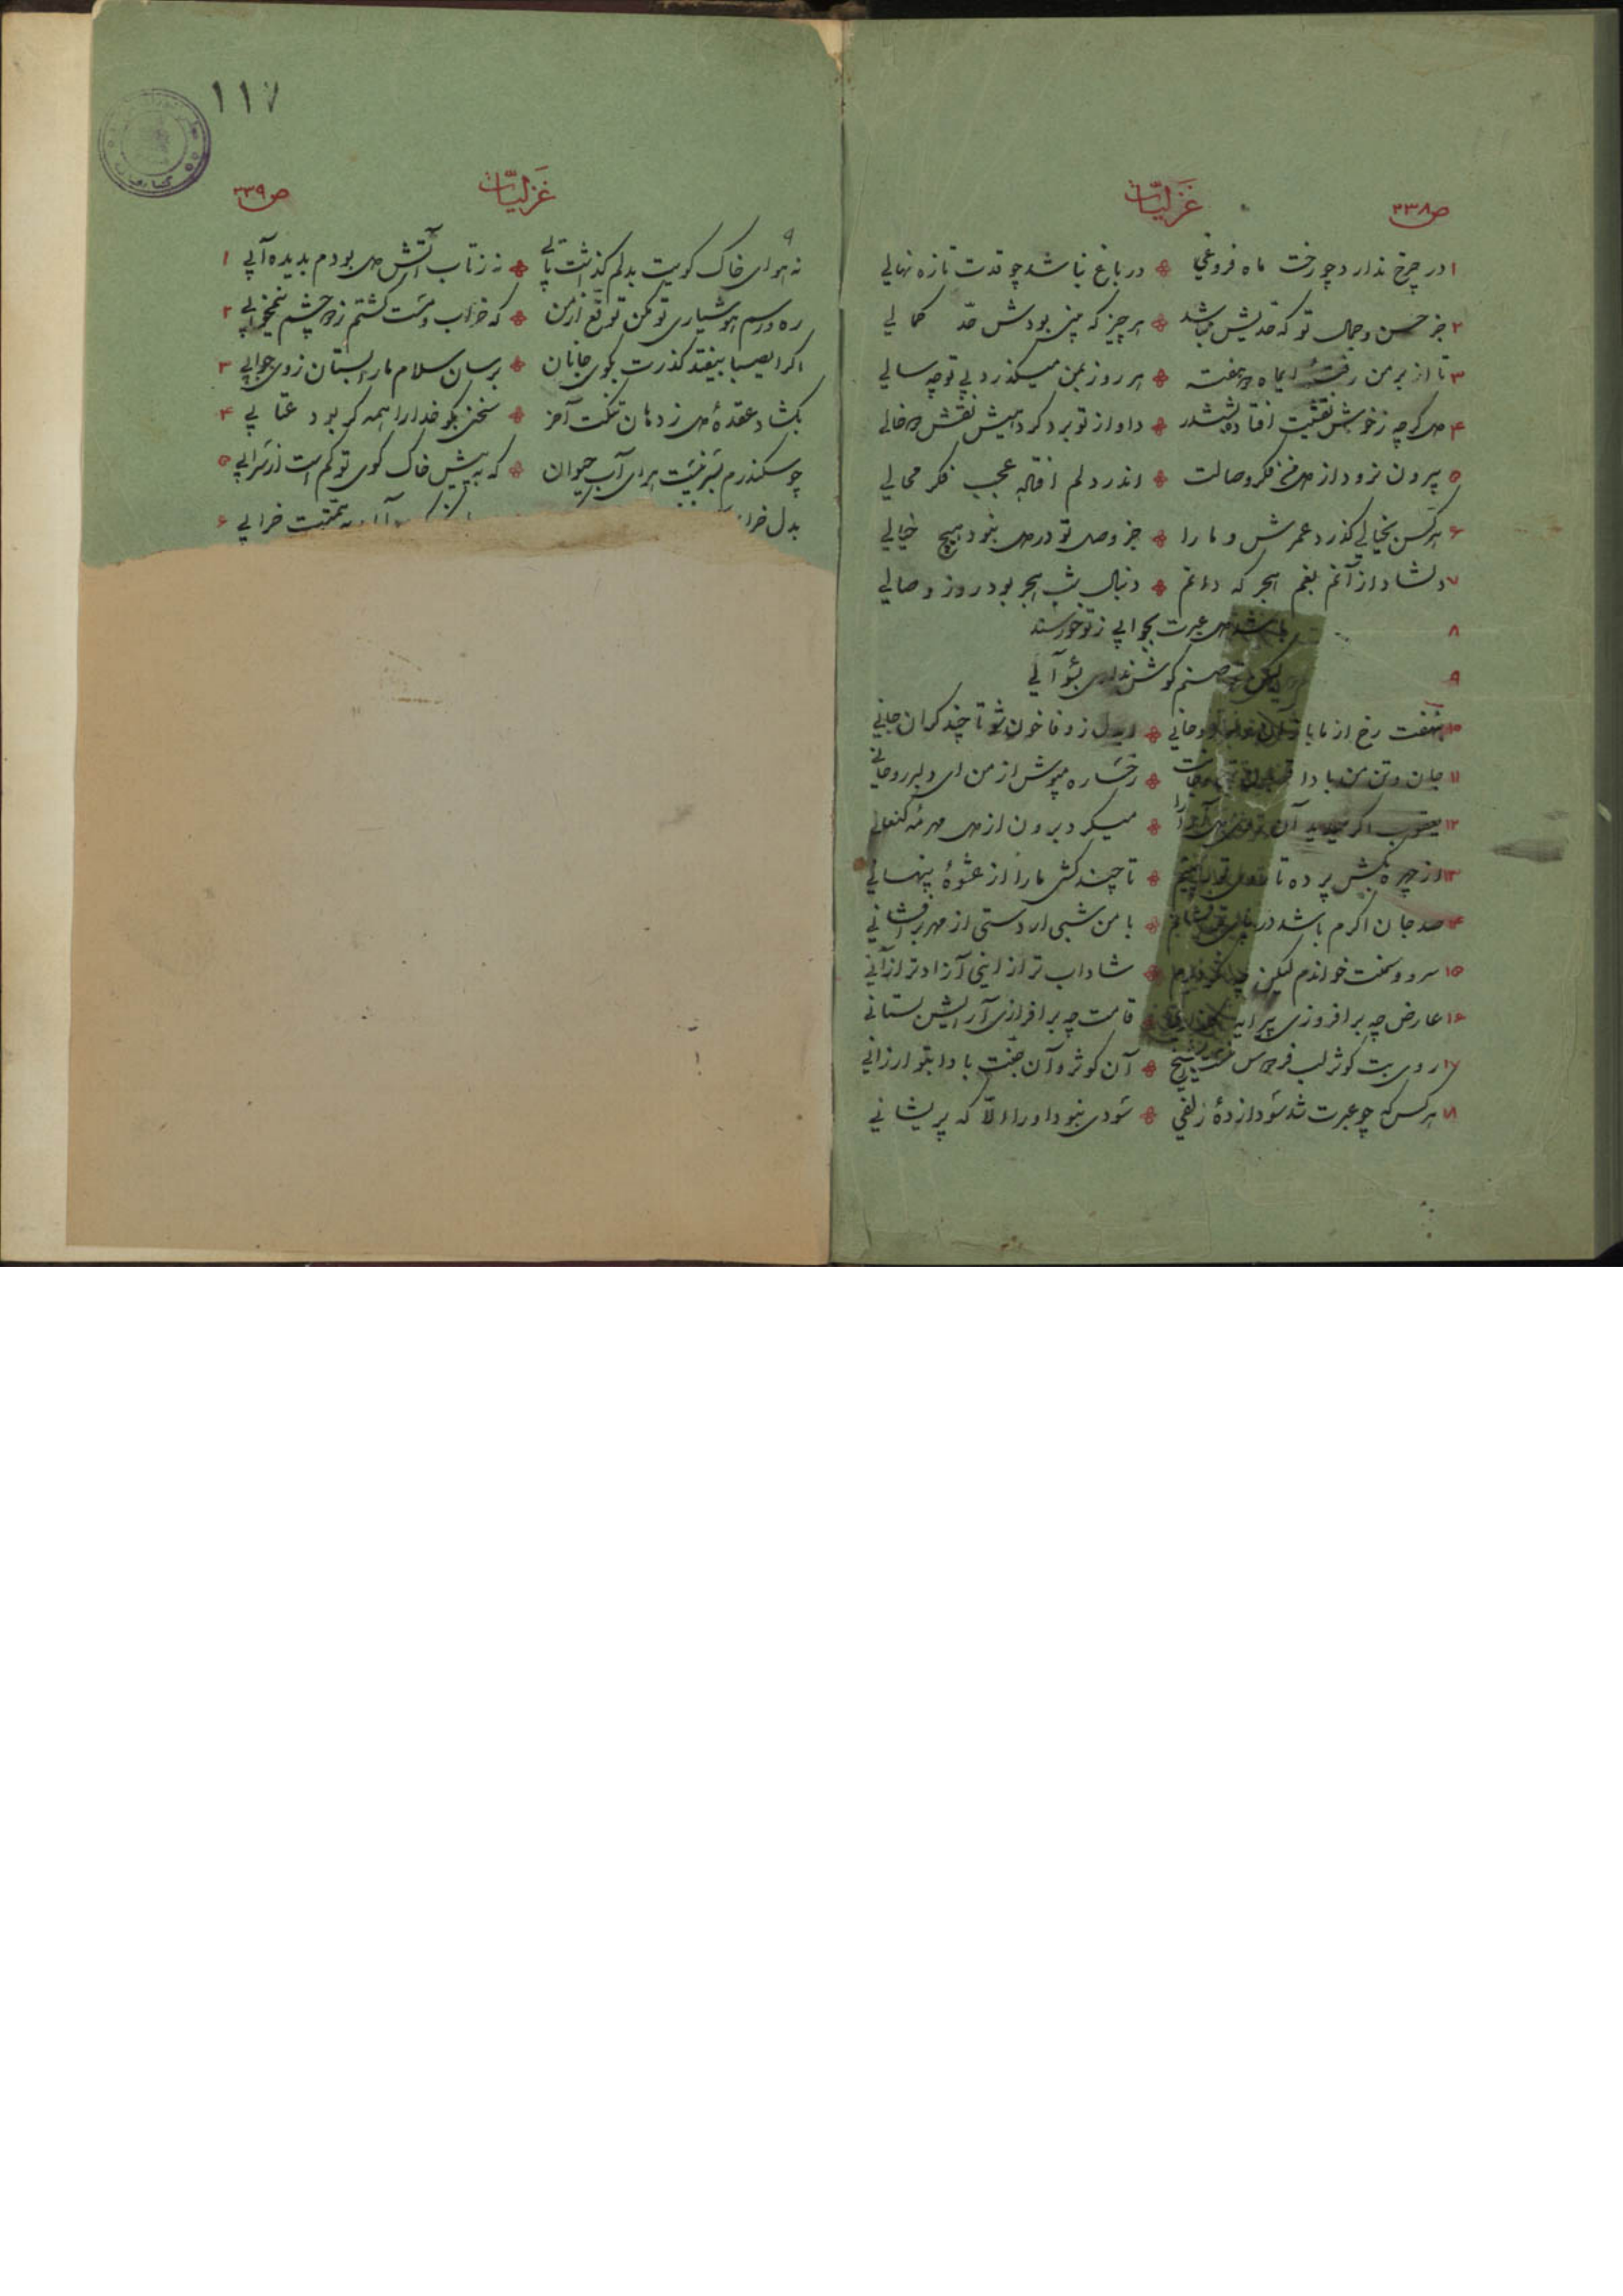 غزلیات
ص ۲۳۸
۱ در چرخ ندارد چو رخت ماه فروغی درباغ نباشد چو قدت تازه نهالی
۲ جز حسن و جمال تو که حدیش نباشد هر چیز که بینی بودش حد کمالی
۳ تا از بر من رفتهٔ ایماه هفته هر روز بمن میکذرد بی تو چه سالی
۴ کرچه ز خوش نقشیت افتاده بششدر داو از تو برد کرد همیش نقش خالی
۵ بیرون نرود از فکر وصالت اندر دلم افتاده عجب فکر محالی
۶ هر کس بخیالی کذرد عمرش و ما را جز وصل تو در دل نبود هیچ خیالی
۷ دلشاد از آنم بغم هجر که دانم دنبال شب هجر بود روز وصالی
۸ باشد عبرت بجوابی ز تو خورسند
۹ لیکن صنم کوش نداری بسؤالی
۱۰ بنهفت رخ از ما باز ایدل ز وفا خون شو تا چند کران جانی
۱۱ جان و تن من بادا رخساره مپوش از من ای دلبر روحانی
۱۲ یعقوب اکر میدید آن میکرد برون از دل مهر مه کنعانی
۱۳ از چهره بکش پرده تا تا چند کشی ما را از عشوهٔ پنهانی
۱۴ صد جان اکرم باشد در با من شبی ار دستی از مهر برافشانی
۱۵ سرو و سمنت خواندم لیکن شاداب تر از اینی آزاد تر از آنی
۱۶ عارض چه برافروزی پیرایه قامت چه برافرازی آرایش بستانی
۱۷ روی بت کوثر لب آن کوثر و آن جنت بادا بتو ارزانی
۱۸ هر کس که چو عبرت شد سودازدهٔ زلفی سودی نبود او را الا که پریشانی
۱۱۷
غزلیات
ص ۲۳۹
نه هوای خاک کویت بدلم کذاشت تابی نه ز تاب آتش دل بودم بدیده آبی ۱
ره و رسم هوشیاری تو مکن توقع از من که خراب و مست کشتم ز چشم نیمخوابی ۲
اکر ایصبا بیفتد کذرت بکوی جانان برسان سلام ما را بستان ز وی جوابی ۳
بکشاد عقدهٔ دل ز دهان تنکت آخر سخنی بکو خدا را همه کر بود عتابی ۴
چو سکندرم بسر نیست هوای آب حیوان که به پیش خاک کوی تو کم است از سرابی ۵
بدل خرابی ۶